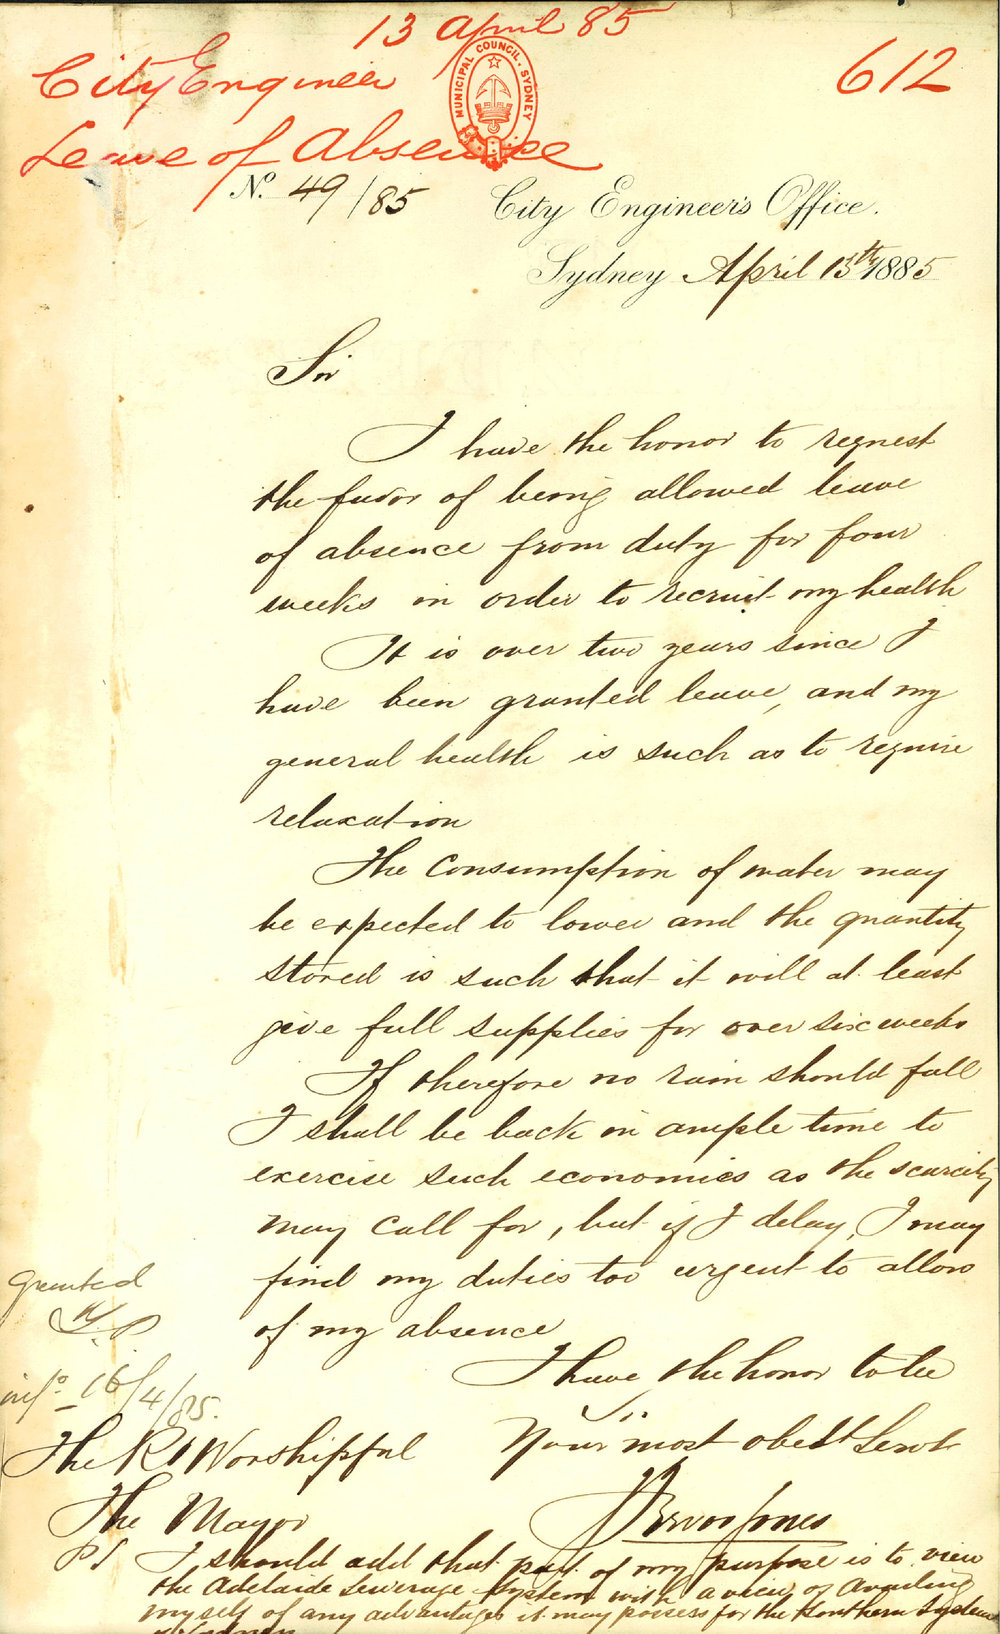 13 April 85
City Engineer
612
MUNICIPAL COUNCIL. SYDNEY
Leave of Absence
No. 49/85
City Engineer's Office.
Sydney April 13th 1885
Sir
I have the honor to request
the favor of being allowed leave
of absence from duty for four
weeks in order to recruit my health
It is over two years since I
have been granted leave, and my
general health is such as to require
relaxation
The consumption of water may
be expected to lower and the quantity
stored is such that it will at least
give full supplies for over six weeks
If therefore no rain should fall
I shall be back in ample time to
exercise such economies as the scarcity
may call for, but if I delay, I may
find my duties too urgent to allow
of my absence
Granted
info 16/4/85.
I have the honor to be
Your most obedt Servt
The Rt Worshipful
The Mayor
J Trevor Jones
PS I should add that part of my purpose is to view
the Adelaide Sewerage System with a view of availing
myself of any advantages it may possess for the Southern System